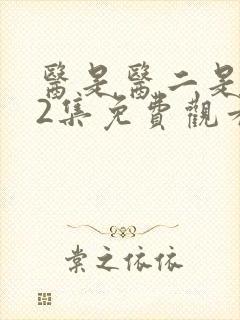 醫是醫二是二
2集免費觀看
棠之依依